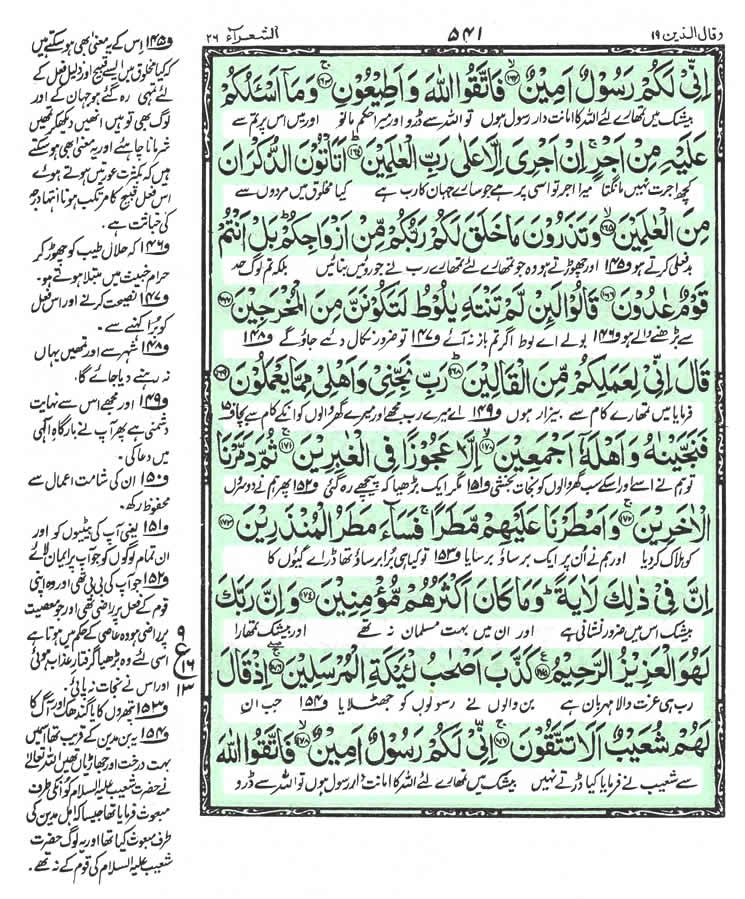 وقال الذين ۱۹
۵۴۱
الشعراء ۲۶
اِنِّیْ لَكُمْ رَسُوْلٌ اَمِیْنٌ ﴿۱۶۲﴾ فَاتَّقُوا اللّٰهَ وَ اَطِیْعُوْنِ ﴿۱۶۳﴾ وَ مَاۤ اَسْـَٔلُكُمْ
بیشک میں تمہارے لئے اللہ کا امانت دار رسول ہوں تو اللہ سے ڈرو اور میرا حکم مانو اور میں اس پر تم سے
عَلَیْهِ مِنْ اَجْرٍ اِنْ اَجْرِیَ اِلَّا عَلٰى رَبِّ الْعٰلَمِیْنَ ﴿۱۶۴﴾ اَتَاْتُوْنَ الذُّكْرَانَ
کچھ اجرت نہیں مانگتا میرا اجر تو اسی پر ہے جو سارے جہان کا رب ہے کیا مخلوق میں مردوں سے
مِنَ الْعٰلَمِیْنَ ﴿۱۶۵﴾ وَ تَذَرُوْنَ مَا خَلَقَ لَكُمْ رَبُّكُمْ مِّنْ اَزْوَاجِكُمْ بَلْ اَنْتُمْ
بدفعلی کرتے ہو و۱۴۵ اور چھوڑتے ہو وہ جو تمہارے لئے تمہارے رب نے جوروئیں بنائیں بلکہ تم لوگ حد
قَوْمٌ عٰدُوْنَ ﴿۱۶۶﴾ قَالُوْا لَىِٕنْ لَّمْ تَنْتَهِ یٰلُوْطُ لَتَكُوْنَنَّ مِنَ الْمُخْرَجِیْنَ ﴿۱۶۷﴾
سے بڑھنے والے ہو و۱۴۶ بولے اے لوط اگر تم باز نہ آئے و۱۴۷ تو ضرور نکال دئیے جاؤ گے و۱۴۸
قَالَ اِنِّیْ لِعَمَلِكُمْ مِّنَ الْقَالِیْنَ ﴿۱۶۸﴾ رَبِّ نَجِّنِیْ وَ اَهْلِیْ مِمَّا یَعْمَلُوْنَ ﴿۱۶۹﴾
فرمایا میں تمہارے کام سے بیزار ہوں و۱۴۹ اے میرے رب مجھے اور میرے گھر والوں کو انکے کام سے بچا و۱۵۰
فَنَجَّیْنٰهُ وَ اَهْلَهٗۤ اَجْمَعِیْنَ ﴿۱۷۰﴾ اِلَّا عَجُوْزًا فِی الْغٰبِرِیْنَ ﴿۱۷۱﴾ ثُمَّ دَمَّرْنَا
تو ہم نے اسے اور اسکے سب گھر والوں کو نجات بخشی و۱۵۱ مگر ایک بڑھیا کہ پیچھے رہ گئی و۱۵۲ پھر ہم نے دوسروں
الْاٰخَرِیْنَ ﴿۱۷۲﴾ وَ اَمْطَرْنَا عَلَیْهِمْ مَّطَرًا فَسَآءَ مَطَرُ الْمُنْذَرِیْنَ ﴿۱۷۳﴾
کو ہلاک کر دیا اور ہم نے ان پر ایک برساؤ برسایا و۱۵۳ تو کیا ہی برا برساؤ تھا ڈرائے گیوں کا
اِنَّ فِیْ ذٰلِكَ لَاٰیَةً وَ مَا كَانَ اَكْثَرُهُمْ مُّؤْمِنِیْنَ ﴿۱۷۴﴾ وَ اِنَّ رَبَّكَ
بیشک اس میں ضرور نشانی ہے اور ان میں بہت مسلمان نہ تھے اور بیشک تمہارا
لَهُوَ الْعَزِیْزُ الرَّحِیْمُ ﴿۱۷۵﴾ كَذَّبَ اَصْحٰبُ لْــٴَـیْكَةِ الْمُرْسَلِیْنَ ﴿۱۷۶﴾ اِذْ قَالَ
رب ہی عزت والا مہربان ہے بن والوں نے رسولوں کو جھٹلایا و۱۵۴ جب ان
لَهُمْ شُعَیْبٌ اَلَا تَتَّقُوْنَ ﴿۱۷۷﴾ اِنِّیْ لَكُمْ رَسُوْلٌ اَمِیْنٌ ﴿۱۷۸﴾ فَاتَّقُوا اللّٰهَ
سے شعیب نے فرمایا کیا ڈرتے نہیں بیشک میں تمہارے لئے اللہ کا امانت دار رسول ہوں تو اللہ سے ڈرو
و۱۴۵ اس کے یہ معنی بھی ہو سکتے ہیں
کہ کیا مخلوق میں ایسے قبیح اور ذلیل فعل کے
لئے تمہی رہ گئے ہو جہان کے اور
لوگ بھی تو ہیں انہیں دیکھ کر تمہیں
شرمانا چاہئے اور یہ معنی بھی ہو سکتے
ہیں کہ بکثرت عورتیں ہوتے ہوئے
اس فعل قبیح کا مرتکب ہونا انتہا درجہ
کی خباثت ہے۔
و۱۴۶ کہ حلال طیب کو چھوڑ کر
حرام خبیث میں مبتلا ہوتے ہو۔
و۱۴۷ نصیحت کرنے اور اس فعل
کو برا کہنے سے۔
و۱۴۸ شہر سے اور تمہیں یہاں
نہ رہنے دیا جائے گا۔
و۱۴۹ اور مجھے اس سے نہایت
دشمنی ہے پھر آپ نے بارگاہِ الٰہی
میں دعا کی۔
و۱۵۰ ان کی شامت اعمال سے
محفوظ رکھ۔
و۱۵۱ یعنی آپ کی بیٹیوں کو اور
ان تمام لوگوں کو جو آپ پر ایمان لائے
و۱۵۲ جو آپ کی بی بی تھی اور وہ اپنی
قوم کے فعل پر راضی تھی اور جو معصیت
پر راضی ہو وہ عاصی کے حکم میں ہوتا ہے
اسی لئے وہ بڑھیا گرفتار عذاب ہوئی
اور اس نے نجات نہ پائی۔
و۱۵۳ پتھروں کا یا گندھک اور آگ کا
و۱۵۴ یہ بن مدین کے قریب تھا اس میں
بہت درخت اور جھاڑیاں تھیں اللہ تعالٰی
نے حضرت شعیب علیہ السلام کو انکی طرف
مبعوث فرمایا تھا جیسا کہ اہل مدین کی
طرف مبعوث کیا تھا اور یہ لوگ حضرت
شعیب علیہ السلام کی قوم کے نہ تھے۔
۹
ع
۱۶
۱۳